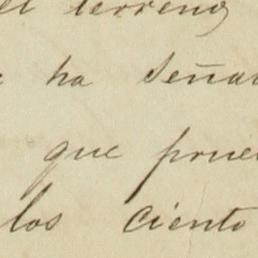 el terreno
ha señal
que prue
los ciento